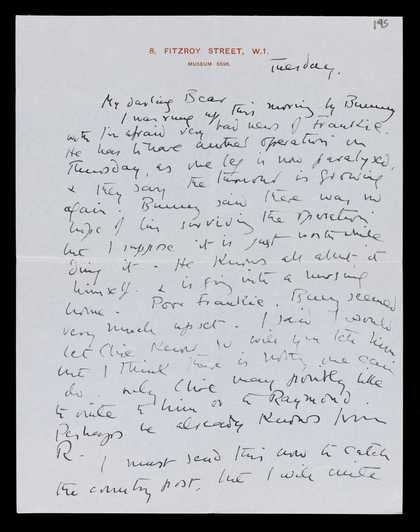 195
8, FITZROY STREET, W.1.
MUSEUM 5596.
Tuesday.
My darling Bear
I was rung up this morning by Bunny
with I'm afraid very bad news of Frankie.
He has to have another operation on
Thursday, as one leg is now paralysed,
& they say the tumour is growing
again. Bunny said there was no
hope of his surviving the operation,
but I suppose it is just worth while
doing it. He knows all about it
himself & is going into a nursing
home. Poor Frankie. Bunny seemed
very much upset. I said I would
let Clive know so will you tell him
but I think there is nothing one can
do. only Clive may possibly like
to write to him or to Raymond.
Perhaps he already knows from
R. I must send this now to catch
the country post, but I will write